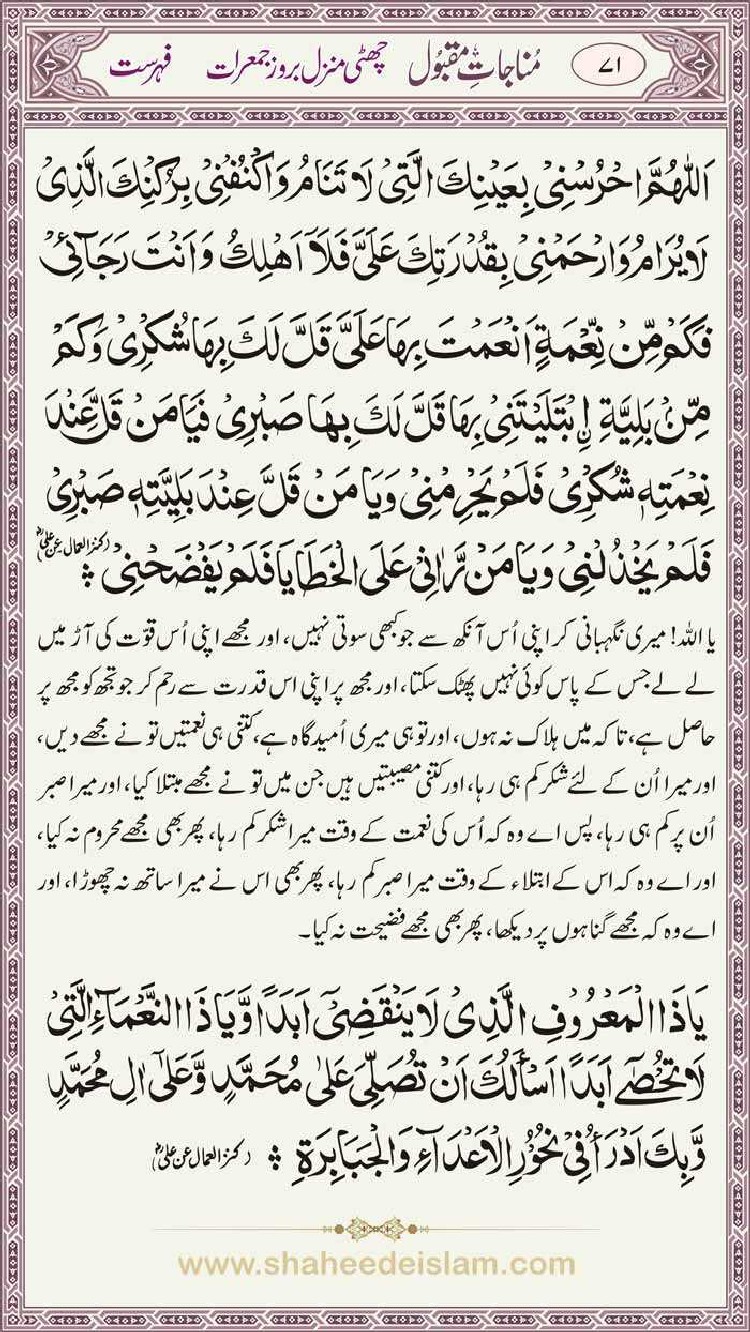 ۷۱ مُناجاتِ مقبُول چھٹی منزل بروز جمعرات فہرست
اَللّٰهُمَّ احْرُسْنِیْ بِعَیْنِكَ الَّتِیْ لَا تَنَامُ وَاكْنُفْنِیْ بِرُكْنِكَ الَّذِیْ
لَا یُرَامُ وَارْحَمْنِیْ بِقُدْرَتِكَ عَلَیَّ فَلَآ اَهْلِكُ وَاَنْتَ رَجَآئِیْ
فَكَمْ مِّنْ نِّعْمَةٍ اَنْعَمْتَ بِهَا عَلَیَّ قَلَّ لَكَ بِهَا شُكْرِیْ وَكَمْ
مِّنْ بَلِیَّةِ ۨابْتَلَیْتَنِیْ بِهَا قَلَّ لَكَ بِهَا صَبْرِیْ فَیَا مَنْ قَلَّ عِنْدَ
نِعْمَتِهٖ شُكْرِیْ فَلَمْ یَحْرِمْنِیْ وَیَا مَنْ قَلَّ عِنْدَ بَلِیَّتِهٖ صَبْرِیْ
فَلَمْ یَخْذُلْنِیْ وَیَا مَنْ رَّاٰنِیْ عَلَی الْخَطَایَا فَلَمْ یَفْضَحْنِیْ ۞ (کنز العمال عن علیؓ)
یا اللہ! میری نگہبانی کر اپنی اُس آنکھ سے جو کبھی سوتی نہیں، اور مجھے اپنی اُس قوّت کی آڑ میں
لے لے جس کے پاس کوئی نہیں پھٹک سکتا، اور مجھ پر اپنی اس قدرت سے رحم کر جو تجھ کو مجھ پر
حاصل ہے، تا کہ میں ہلاک نہ ہوں، اور تو ہی میری اُمیدگاہ ہے، کتنی ہی نعمتیں تو نے مجھے دیں،
اور میرا اُن کے لئے شکر کم ہی رہا، اور کتنی مصیبتیں ہیں جن میں تو نے مجھے مبتلا کیا، اور میرا صبر
اُن پر کم ہی رہا، پس اے وہ کہ اُس کی نعمت کے وقت میرا شکر کم رہا، پھر بھی مجھے محروم نہ کیا،
اور اے وہ کہ اس کے ابتلاء کے وقت میرا صبر کم رہا، پھر بھی اس نے میرا ساتھ نہ چھوڑا، اور
اے وہ کہ مجھے گناہوں پر دیکھا، پھر بھی مجھے فضیحت نہ کیا۔
یَا ذَا الْمَعْرُوْفِ الَّذِیْ لَا یَنْقَضِیْٓ اَبَدًا وَّیَا ذَا النَّعْمَآءِ الَّتِیْ
لَا تُحْصٰٓی اَبَدًا اَسْأَلُكَ اَنْ تُصَلِّیَ عَلٰی مُحَمَّدٍ وَّعَلٰٓی اٰلِ مُحَمَّدٍ
وَّبِكَ اَدْرَأُ فِیْ نُحُوْرِ الْاَعْدَآءِ وَالْجَبَابِرَةِ ۞ (کنز العمال عن علیؓ)
www.shaheedeislam.com